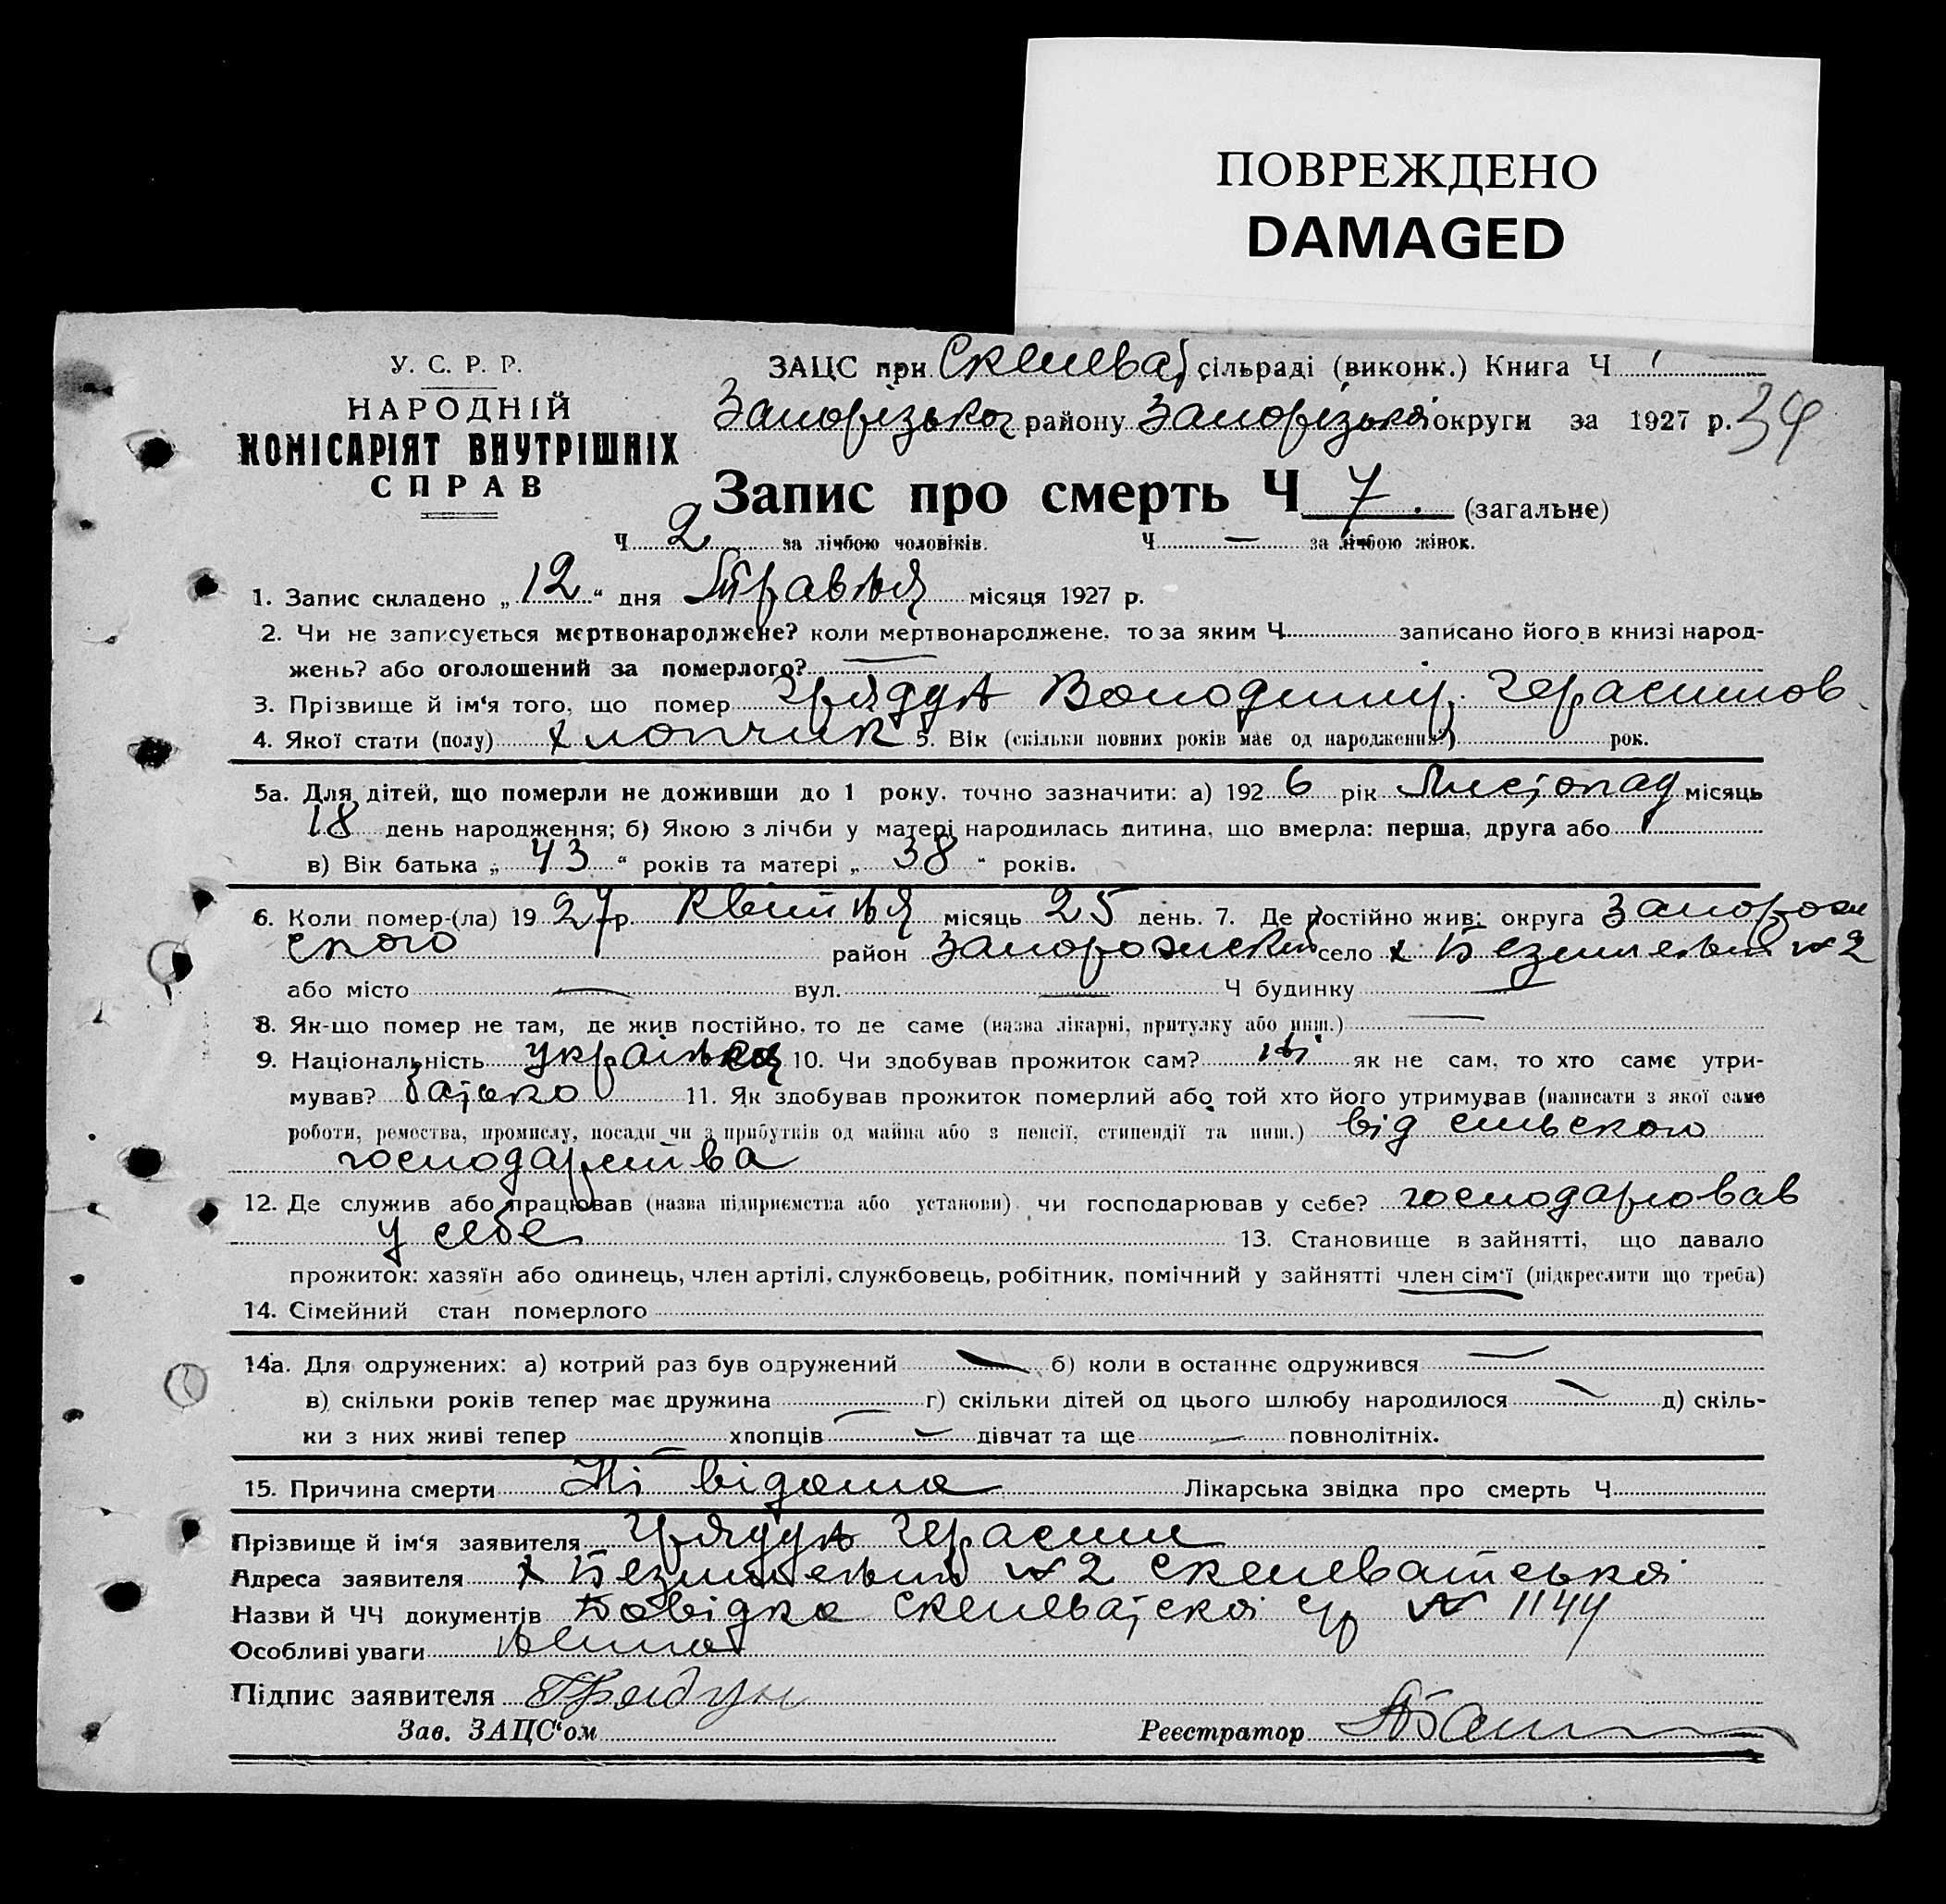 ПОВРЕЖДЕНО
DAMAGED
У. С. Р. Р.
НАРОДНІЙ
КОМІСАРІЯТ ВНУТРІШНІХ
СПРАВ
ЗАЦС при Скелеват сільраді (виконк.) Книга Ч
Запорізької району Запорізької округи за 1927 р. 34
Запис про смерть Ч 7. (загальне)
Ч 2 за лічбою чоловіків. Ч — за лічбою жінок.
1. Запис складено „ 12 “ дня Травня місяця 1927 р.
2. Чи не записується мертвонароджене? коли мертвонароджене, то за яким Ч записано його в книзі народ-
жень? або оголошений за померлого? —
3. Прізвище й ім‘я того, що помер Грядун Володимир Герасимов
4. Якої стати (полу) хлопчик 5. Вік (скільки повних років має од народження?) рок.
5а. Для дітей, що померли не доживши до 1 року, точно зазначити: а) 192 6 рік Листопад місяць
18 день народження; б) Якою з лічби у матері народилась дитина, що вмерла: перша, друга або
в) Вік батька „ 43 “ років та матері „ 38 “ років.
6. Коли помер-(ла) 19 27 р. Квітня місяць 25 день. 7. Де постійно жив: округа Запорож
ского район Запорожский село х №2
або місто — вул. — Ч будинку —
8. Як-що помер не там, де жив постійно, то де саме (назва лікарні, притулку або инш.) —
9. Національність Українська 10. Чи здобував прожиток сам? ні як не сам, то хто саме утри-
мував? батько 11. Як здобував прожиток померлий або той хто його утримував (написати з якої саме
роботи, ремества, промислу, посади чи з прибутків од майна або з пенсії, стипендії та инш.) від сильского
господарства
12. Де служив або працював (назва підприємства або установи) чи господарював у себе? господарював
у себе 13. Становище в зайнятті, що давало
прожиток: хазяїн або одинець, член артілі, службовець, робітник, помічний у зайнятті член сім‘ї (підкреслити що треба)
14. Сімейний стан померлого
14а. Для одружених: а) котрий раз був одружений — б) коли в останнє одружився —
в) скільки років тепер має дружина — г) скільки дітей од цього шлюбу народилося — д) скіль-
ки з них живі тепер — хлопців — дівчат та ще — повнолітніх.
15. Причина смерти Ні відома Лікарська звідка про смерть Ч
Прізвище й ім‘я заявителя Грядун Герасим
Адреса заявителя х №2 Скелеватської
Назви й ЧЧ документів Довідка Скелеватскої с/р № 1144
Особливі уваги нема
Підпис заявителя Грядун
Зав. ЗАЦС‘ом Реєстратор